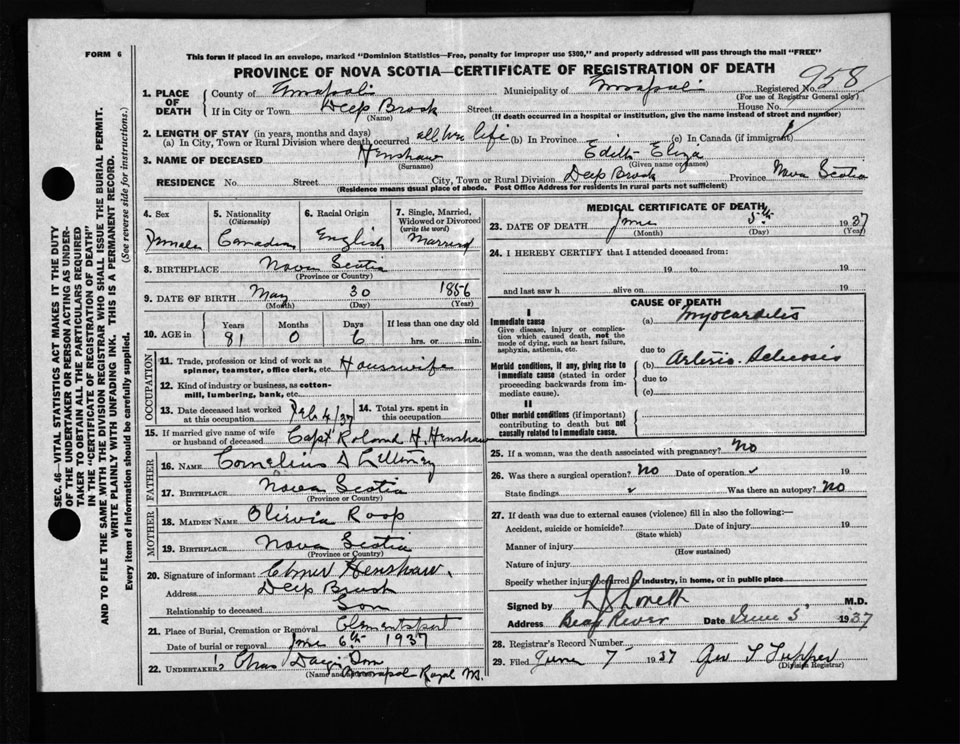 FORM 6
This form if placed in an envelope, marked "Dominion Statistics—Free, penalty for improper use $300," and properly addressed will pass through the mail "FREE"
PROVINCE OF NOVA SCOTIA—CERTIFICATE OF REGISTRATION OF DEATH
1. PLACE OF DEATH
County of Annapolis Municipality of Annapolis Registered No. 958
(For use of Registrar General only)
If in City or Town Deep Brook Street House No.
(Name) (If death occurred in a hospital or institution, give the name instead of street and number)
2. LENGTH OF STAY (in years, months and days)
(a) In City, Town or Rural Division where death occurred all her life (b) In Province (c) In Canada (if immigrant)
3. NAME OF DECEASED Henshaw Edith Eliza
(Surname) (Given name or names)
RESIDENCE No. Street City, Town or Rural Division Deep Brook Province Nova Scotia
(Residence means usual place of abode. Post Office Address for residents in rural parts not sufficient)
4. Sex Female
5. Nationality (Citizenship) Canadian
6. Racial Origin English
7. Single, Married, Widowed or Divorced (write the word) Married
8. BIRTHPLACE Nova Scotia
(Province or Country)
9. DATE OF BIRTH May 30 1856
(Month) (Day) (Year)
10. AGE in Years 81 Months 0 Days 6 If less than one day old hrs. or min.
OCCUPATION
11. Trade, profession or kind of work as spinner, teamster, office clerk, etc. Housewife
12. Kind of industry or business, as cotton-mill, lumbering, bank, etc.
13. Date deceased last worked at this occupation Feb 4/37
14. Total yrs. spent in this occupation
15. If married give name of wife or husband of deceased Capt Roland H. Henshaw
FATHER
16. Name Cornelius
17. Birthplace Nova Scotia
(Province or Country)
MOTHER
18. Maiden Name Olivia Roop
19. Birthplace Nova Scotia
(Province or Country)
20. Signature of informant Henshaw.
Address Deep Brook
Relationship to deceased Son
21. Place of Burial, Cremation or Removal Clementsport
Date of burial or removal June 6th 1937
22. UNDERTAKER Chas
(Name and Royal
MEDICAL CERTIFICATE OF DEATH
23. DATE OF DEATH June 5th 1937
(Month) (Day) (Year)
24. I HEREBY CERTIFY that I attended deceased from:
19 to 19
and last saw h alive on 19
CAUSE OF DEATH
I
Immediate cause
Give disease, injury or complication which caused death, not the mode of dying, such as heart failure, asphyxia, asthenia, etc.
(a) Myocarditis
due to
Morbid conditions, if any, giving rise to immediate cause (stated in order proceeding backwards from immediate cause).
(b) Arterio-Sclerosis
due to
(c)
II
Other morbid conditions (if important) contributing to death but not causally related to immediate cause.
25. If a woman, was the death associated with pregnancy? No
26. Was there a surgical operation? No Date of operation 19
State findings Was there an autopsy? No
27. If death was due to external causes (violence) fill in also the following:—
Accident, suicide or homicide? Date of injury 19
(State which)
Manner of injury
(How sustained)
Nature of injury
Specify whether injury occurred in industry, in home, or in public place
Signed by M.D.
Address Bear River Date June 5 1937
28. Registrar's Record Number
29. Filed June 7 1937 Geo T Tupper
(Division Registrar)
SEC. 46—VITAL STATISTICS ACT MAKES IT THE DUTY
OF THE UNDERTAKER OR PERSON ACTING AS UNDER-
TAKER TO OBTAIN ALL THE PARTICULARS REQUIRED
IN THE "CERTIFICATE OF REGISTRATION OF DEATH"
AND TO FILE THE SAME WITH THE DIVISION REGISTRAR WHO SHALL ISSUE THE BURIAL PERMIT.
WRITE PLAINLY WITH UNFADING INK. THIS IS A PERMANENT RECORD.
Every item of information should be carefully supplied. (See reverse side for instructions.)